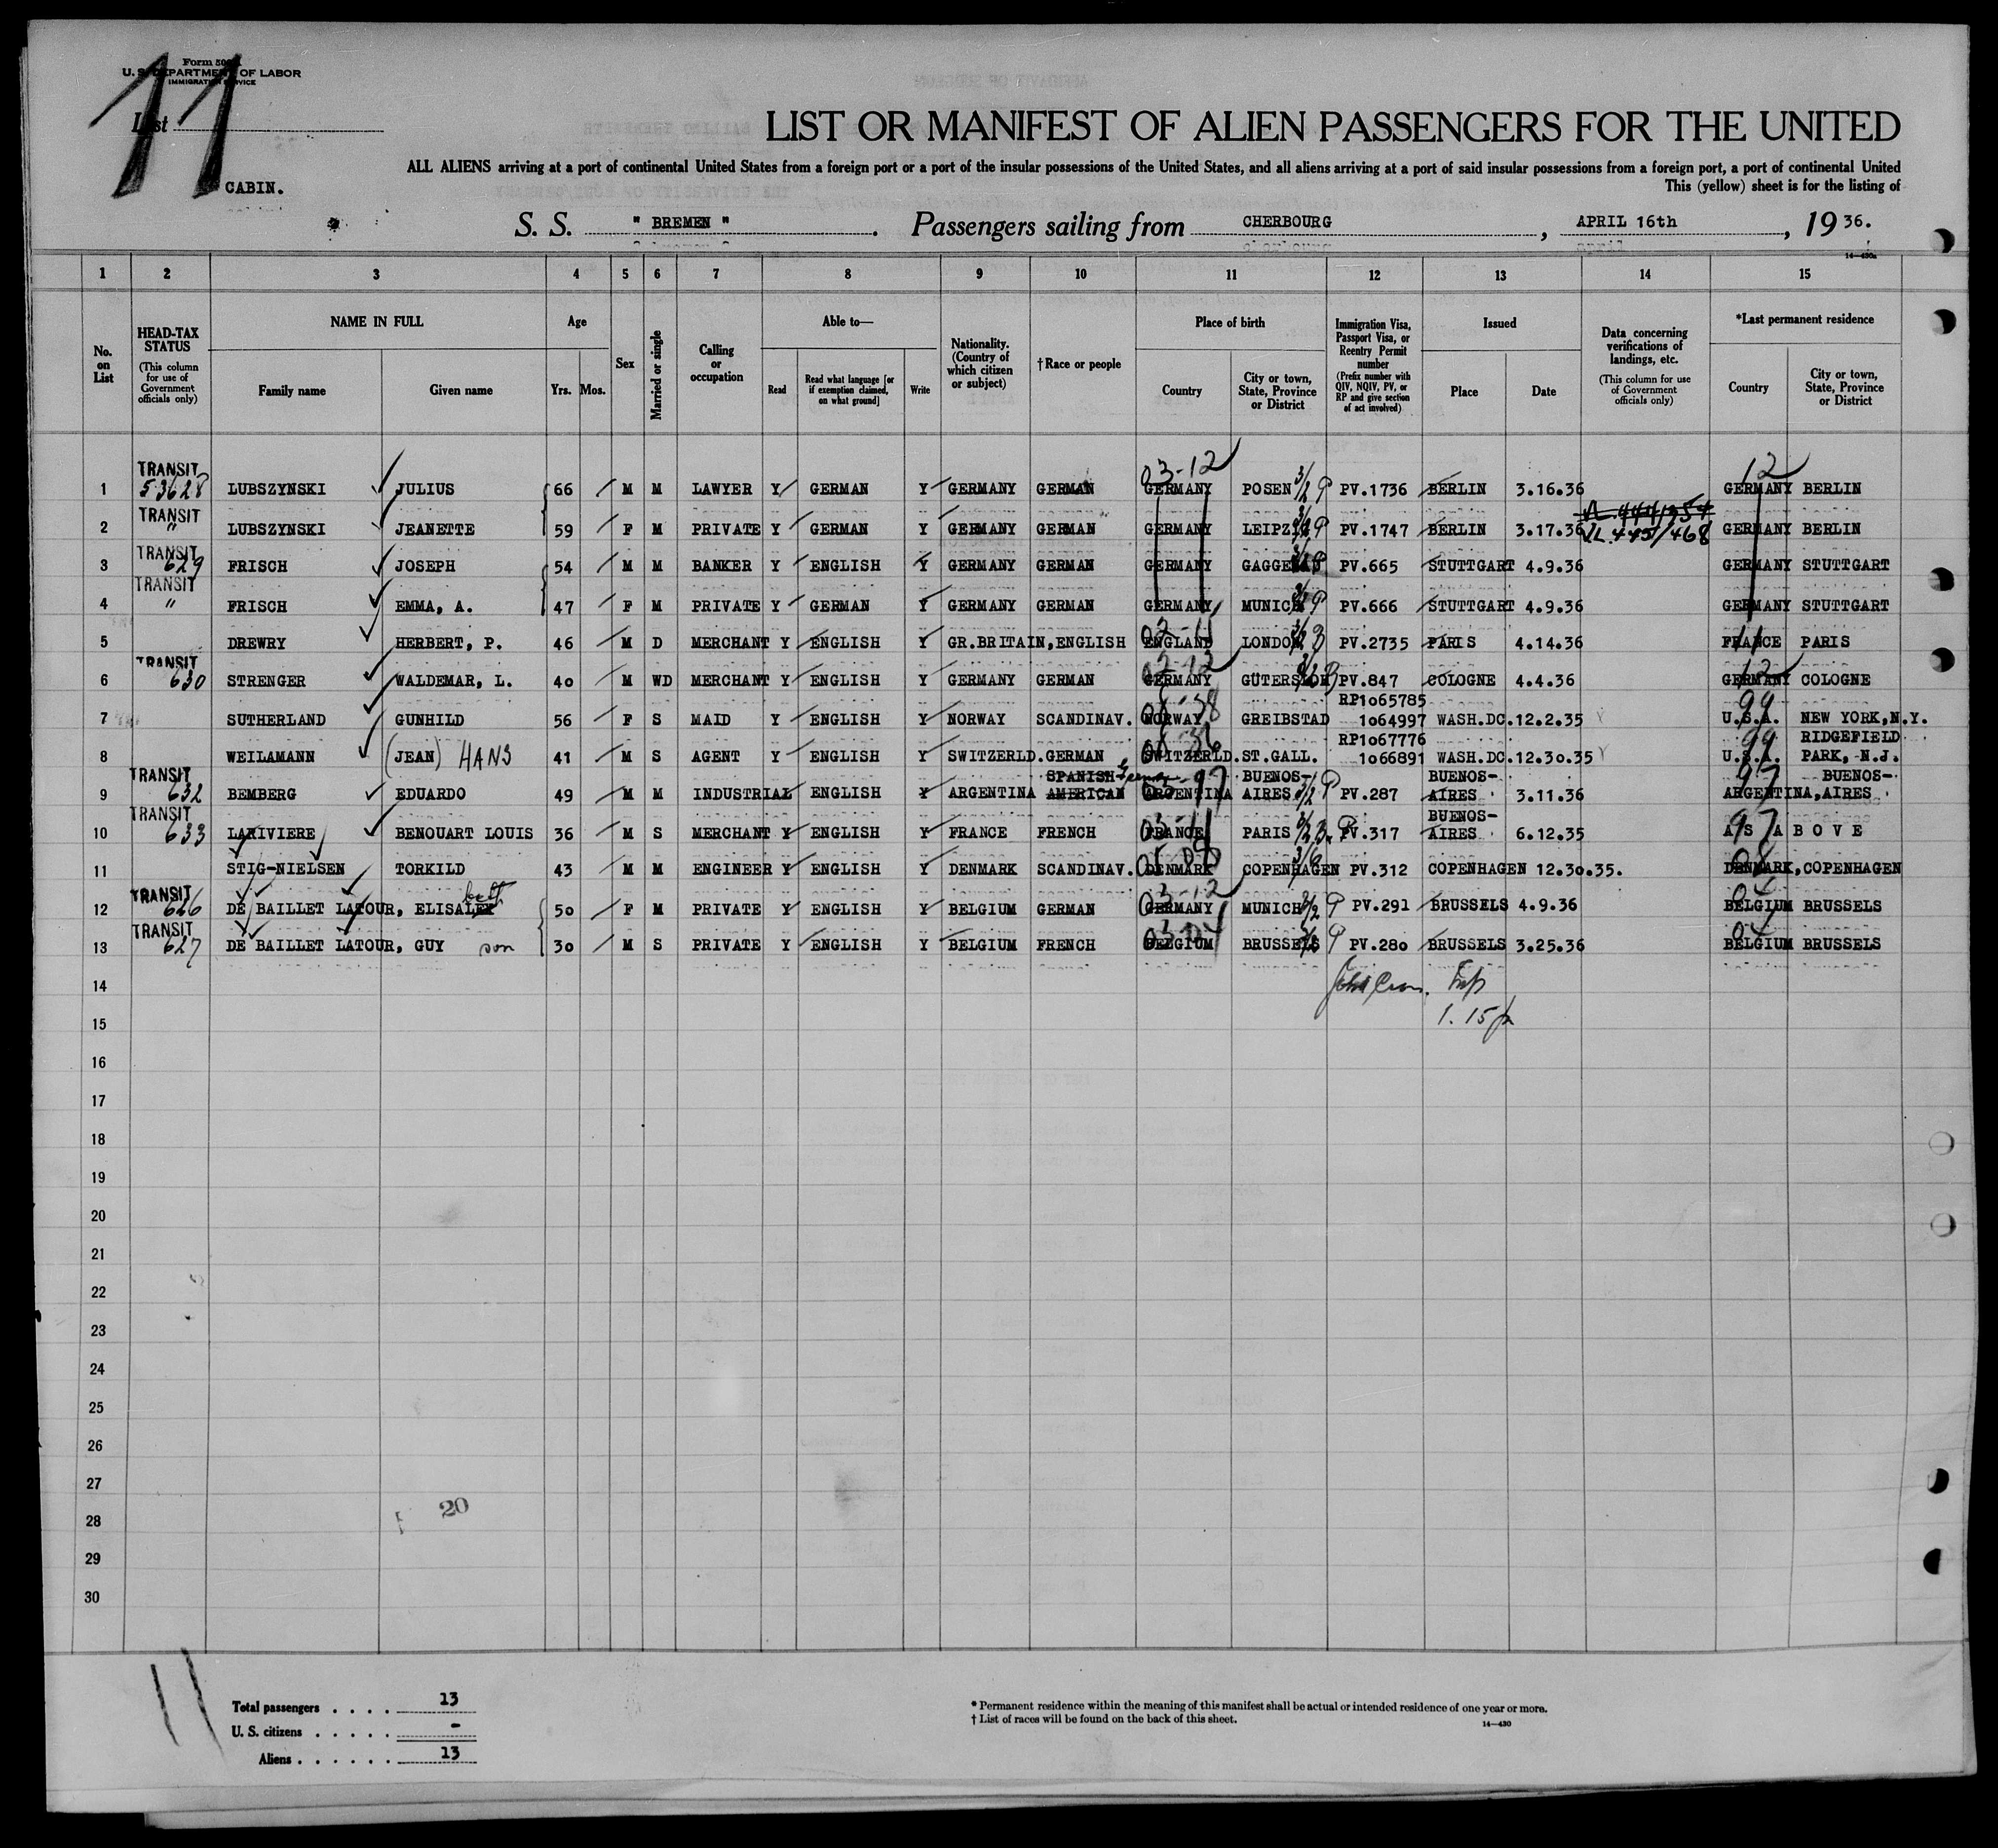 11
Form 500
U. S. DEPARTMENT OF LABOR
IMMIGRATION SERVICE
List
CABIN.
LIST OR MANIFEST OF ALIEN PASSENGERS FOR THE UNITED
ALL ALIENS arriving at a port of continental United States from a foreign port or a port of the insular possessions of the United States, and all aliens arriving at a port of said insular possessions from a foreign port, a port of continental United
This (yellow) sheet is for the listing of
S. S. " BREMEN " . Passengers sailing from CHERBOURG , APRIL 16th , 19 36.
1 2 3 4 5 6 7 8 9 10 11 12 13 14 15
No. on List
HEAD-TAX STATUS (This column for use of Government officials only)
NAME IN FULL Family name Given name
Age Yrs. Mos.
Sex
Married or single
Calling or occupation
Able to— Read Read what language [or if exemption claimed, on what ground] Write
Nationality. (Country of which citizen or subject)
† Race or people
Place of birth Country City or town, State, Province or District
Immigration Visa, Passport Visa, or Reentry Permit number (Prefix number with QIV, NQIV, PV, or RP and give section of act involved)
Issued Place Date
Data concerning verifications of landings, etc. (This column for use of Government officials only)
*Last permanent residence Country City or town, State, Province or District
03-12 12
1 TRANSIT 53628 LUBSZYNSKI JULIUS 66 M M LAWYER Y GERMAN Y GERMANY GERMAN GERMANY POSEN 3/2 P PV.1736 BERLIN 3.16.36 GERMANY BERLIN
2 TRANSIT " LUBSZYNSKI JEANETTE 59 F M PRIVATE Y GERMAN Y GERMANY GERMAN GERMANY LEIPZ P PV.1747 BERLIN 3.17.36 VL 445/468 GERMANY BERLIN
3 TRANSIT 629 FRISCH JOSEPH 54 M M BANKER Y ENGLISH Y GERMANY GERMAN GERMANY PV.665 STUTTGART 4.9.36 GERMANY STUTTGART
4 TRANSIT " FRISCH EMMA, A. 47 F M PRIVATE Y GERMAN Y GERMANY GERMAN GERMANY MUNICH P PV.666 STUTTGART 4.9.36 GERMANY STUTTGART
5 DREWRY HERBERT, P. 46 M D MERCHANT Y ENGLISH Y GR.BRITAIN, ENGLISH ENGLAND LONDON PV.2735 PARIS 4.14.36 FRANCE PARIS
6 TRANSIT 630 STRENGER WALDEMAR, L. 40 M WD MERCHANT Y ENGLISH Y GERMANY GERMAN GERMANY GÜTERSLOH PV.847 COLOGNE 4.4.36 GERMANY COLOGNE
7 SUTHERLAND GUNHILD 56 F S MAID Y ENGLISH Y NORWAY SCANDINAV. NORWAY GREIBSTAD RP1065785 1064997 WASH.DC. 12.2.35 99 U.S.A. NEW YORK, N.Y.
8 WEILAMANN (JEAN) HANS 41 M S AGENT Y ENGLISH Y SWITZERLD. GERMAN SWITZERLD. ST.GALL. RP1067776 1066891 WASH.DC. 12.30.35 99 U.S.A. RIDGEFIELD PARK, N.J.
9 TRANSIT 632 BEMBERG EDUARDO 49 M M INDUSTRIAL ENGLISH Y ARGENTINA SPANISH AMERICAN German ARGENTINA BUENOS- AIRES P PV.287 BUENOS- AIRES 3.11.36 97 ARGENTINA, BUENOS- AIRES
10 TRANSIT 633 LARIVIERE BENOUART LOUIS 36 M S MERCHANT Y ENGLISH Y FRANCE FRENCH FRANCE PARIS PV.317 BUENOS- AIRES 6.12.35 97 AS ABOVE
11 STIG-NIELSEN TORKILD 43 M M ENGINEER Y ENGLISH Y DENMARK SCANDINAV. DENMARK COPENHAGEN PV.312 COPENHAGEN 12.30.35. 08 DENMARK, COPENHAGEN
12 TRANSIT 626 DE BAILLET LATOUR, ELISALET beth 50 F M PRIVATE Y ENGLISH Y BELGIUM GERMAN 03-12 GERMANY MUNICH 3/2 P PV.291 BRUSSELS 4.9.36 04 BELGIUM BRUSSELS
13 TRANSIT 627 DE BAILLET LATOUR, GUY son 30 M S PRIVATE Y ENGLISH Y BELGIUM FRENCH BELGIUM BRUSSELS P PV.280 BRUSSELS 3.25.36 04 BELGIUM BRUSSELS
14
15 1.15
16
17
18
19
20
21
22
23
24
25
26
27
20
28
29
30
11
Total passengers . . . . 13
U. S. citizens . . . . . -
Aliens . . . . . . 13
* Permanent residence within the meaning of this manifest shall be actual or intended residence of one year or more.
† List of races will be found on the back of this sheet.
14—430